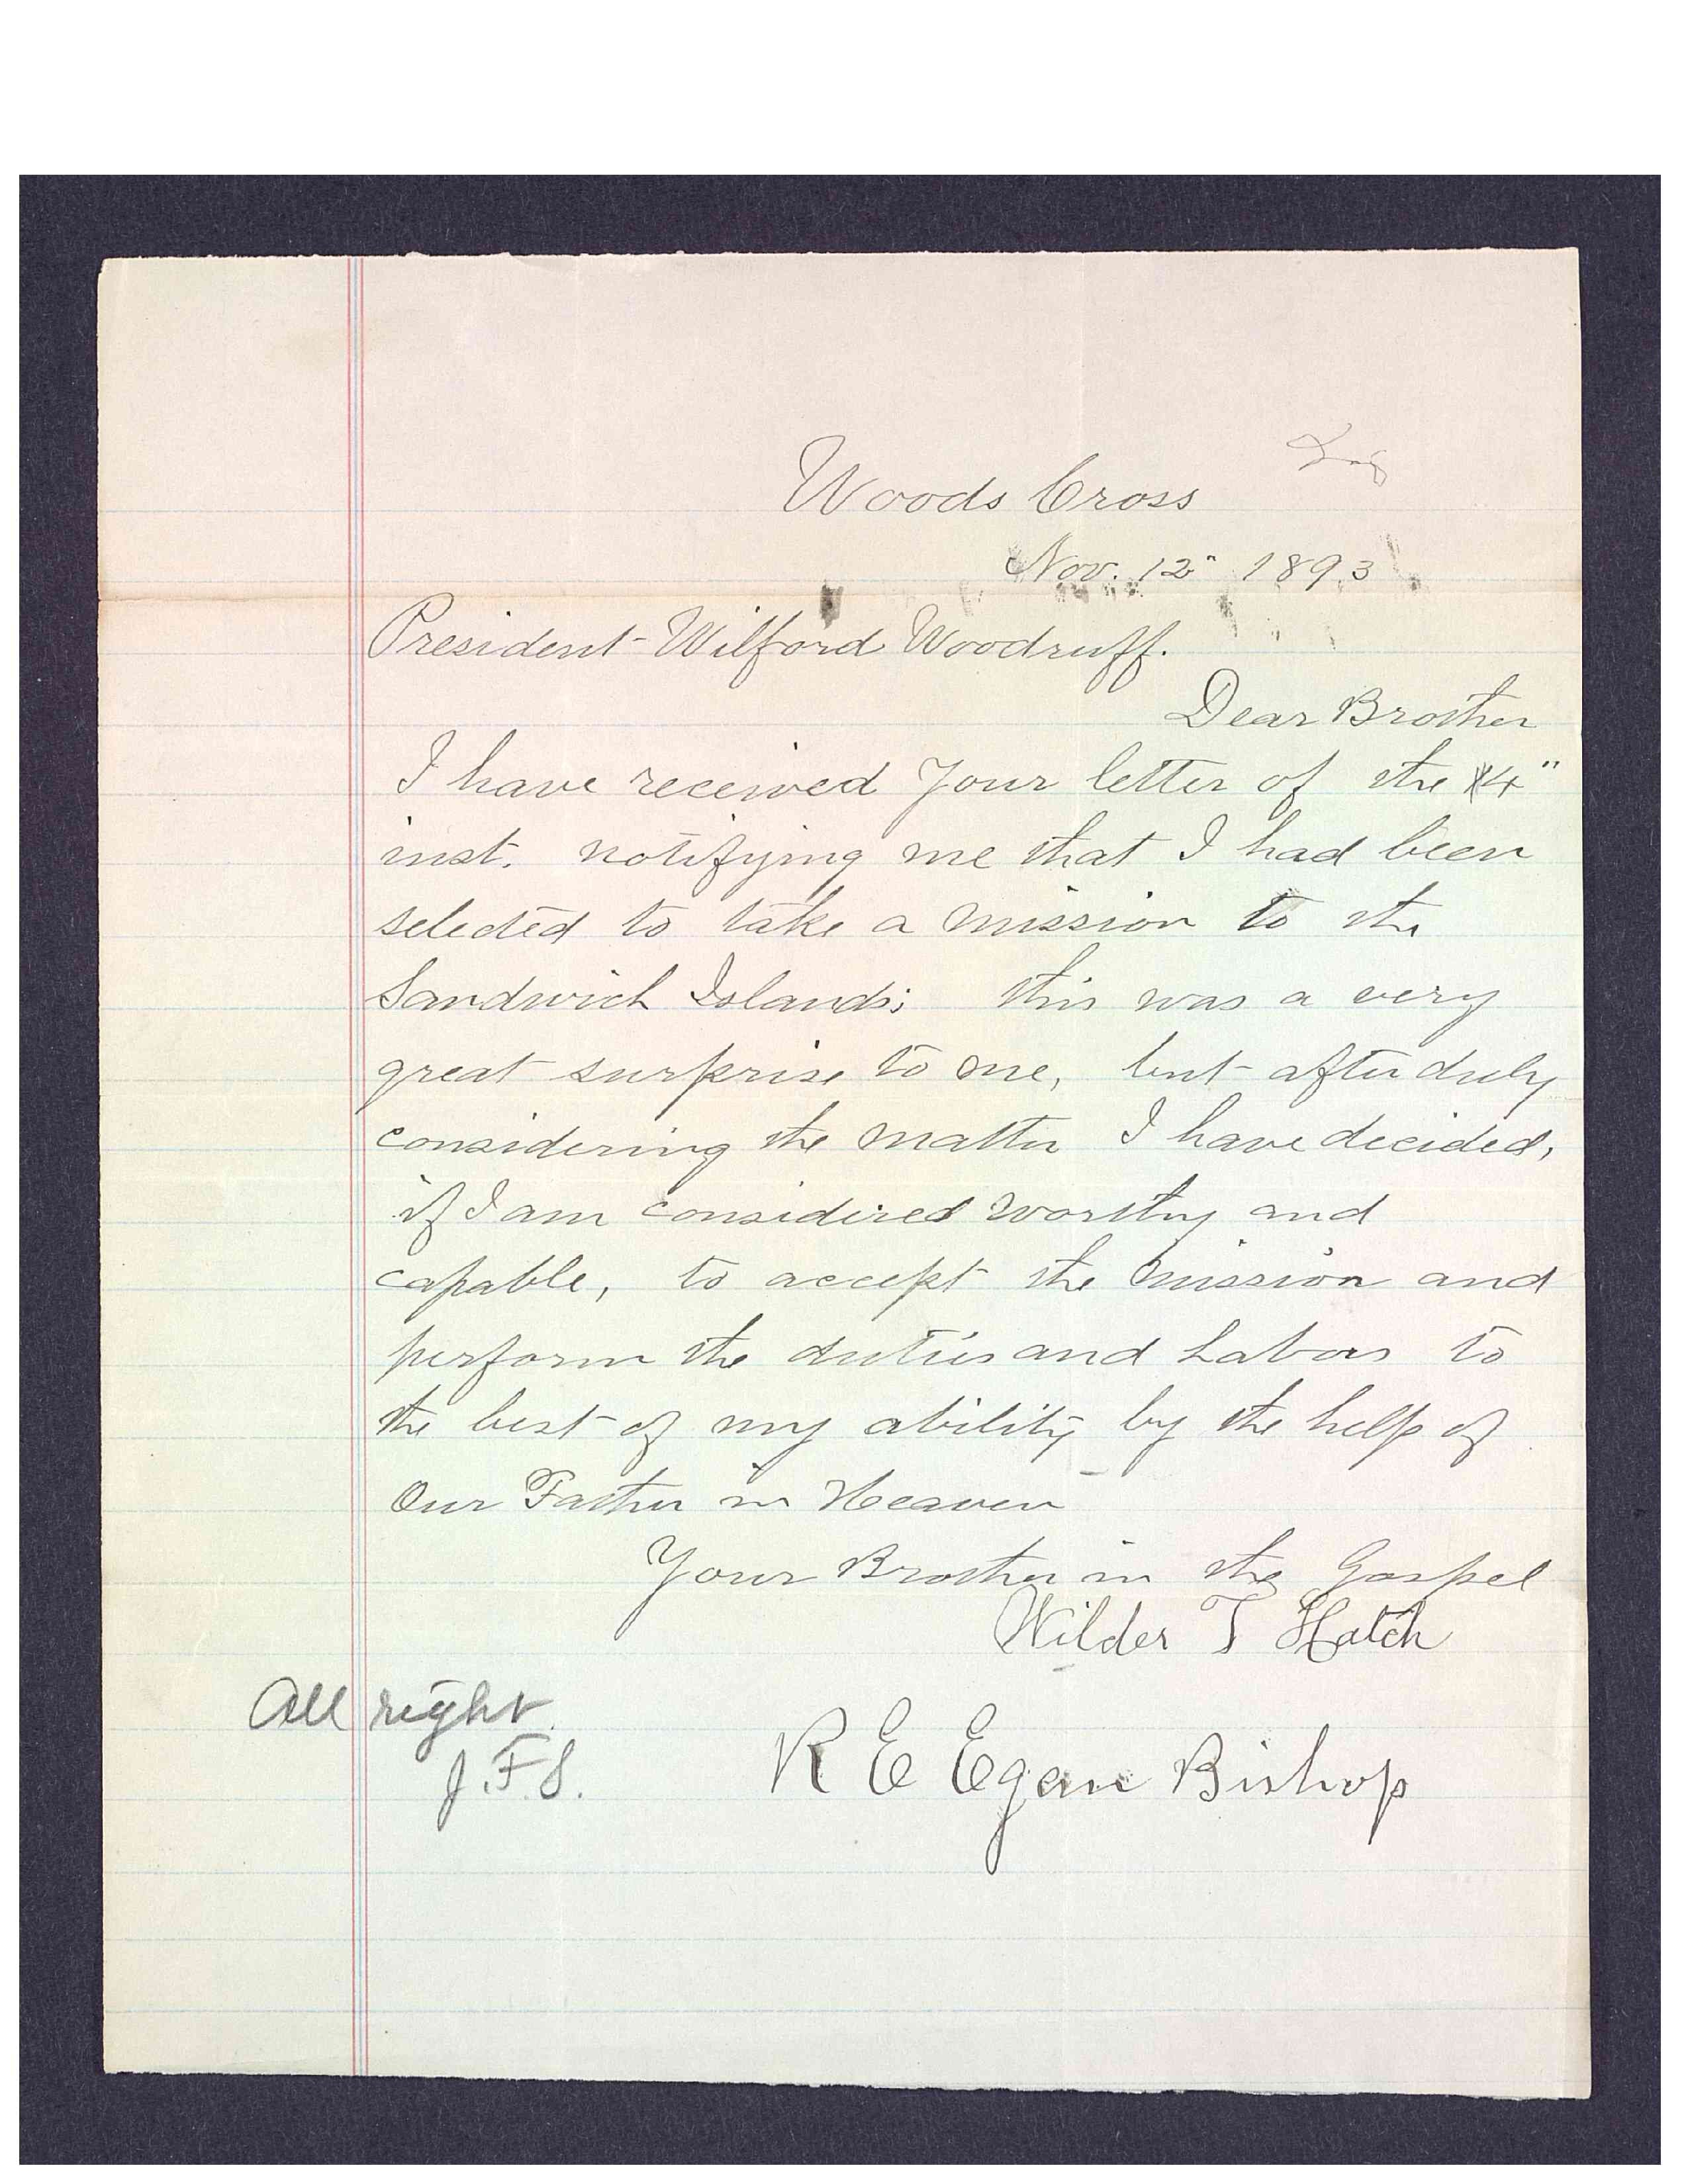 Woods Cross
Nov. 12" 1893
President Wilford Woodruff.
Dear Brother
I have received Your letter of the 4"
inst. notifying me that I had been
selected to take a mission to the
Sandwich Islands; this was a very
great surprise to me, but after duly
considering the matter I have decided,
if I am considered worthy and
capable, to accept the mission and
perform the duties and Labors to
the best of my ability by the help of
Our Father in Heaven
Your Brother in the Gospel
Wilder T Hatch
All right.
J.F.S.
R E Egan Bishop